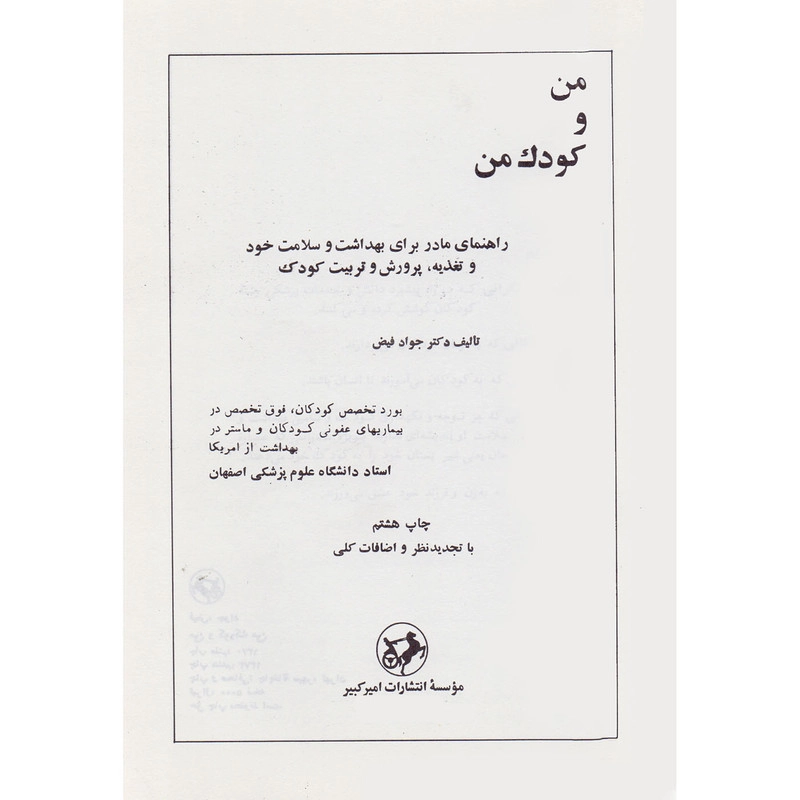 من
و
كودك من
راهنمای مادر برای بهداشت و سلامت خود
و تغذیه، پرورش و تربیت کودک
تألیف دکتر جواد فیض
بورد تخصص کودکان، فوق تخصص در
بیماریهای عفونی کودکان و ماستر در
بهداشت از امریکا
استاد دانشگاه علوم پزشکی اصفهان
چاپ هشتم
با تجدیدنظر و اضافات کلی
مؤسسهٔ انتشارات امیرکبیر